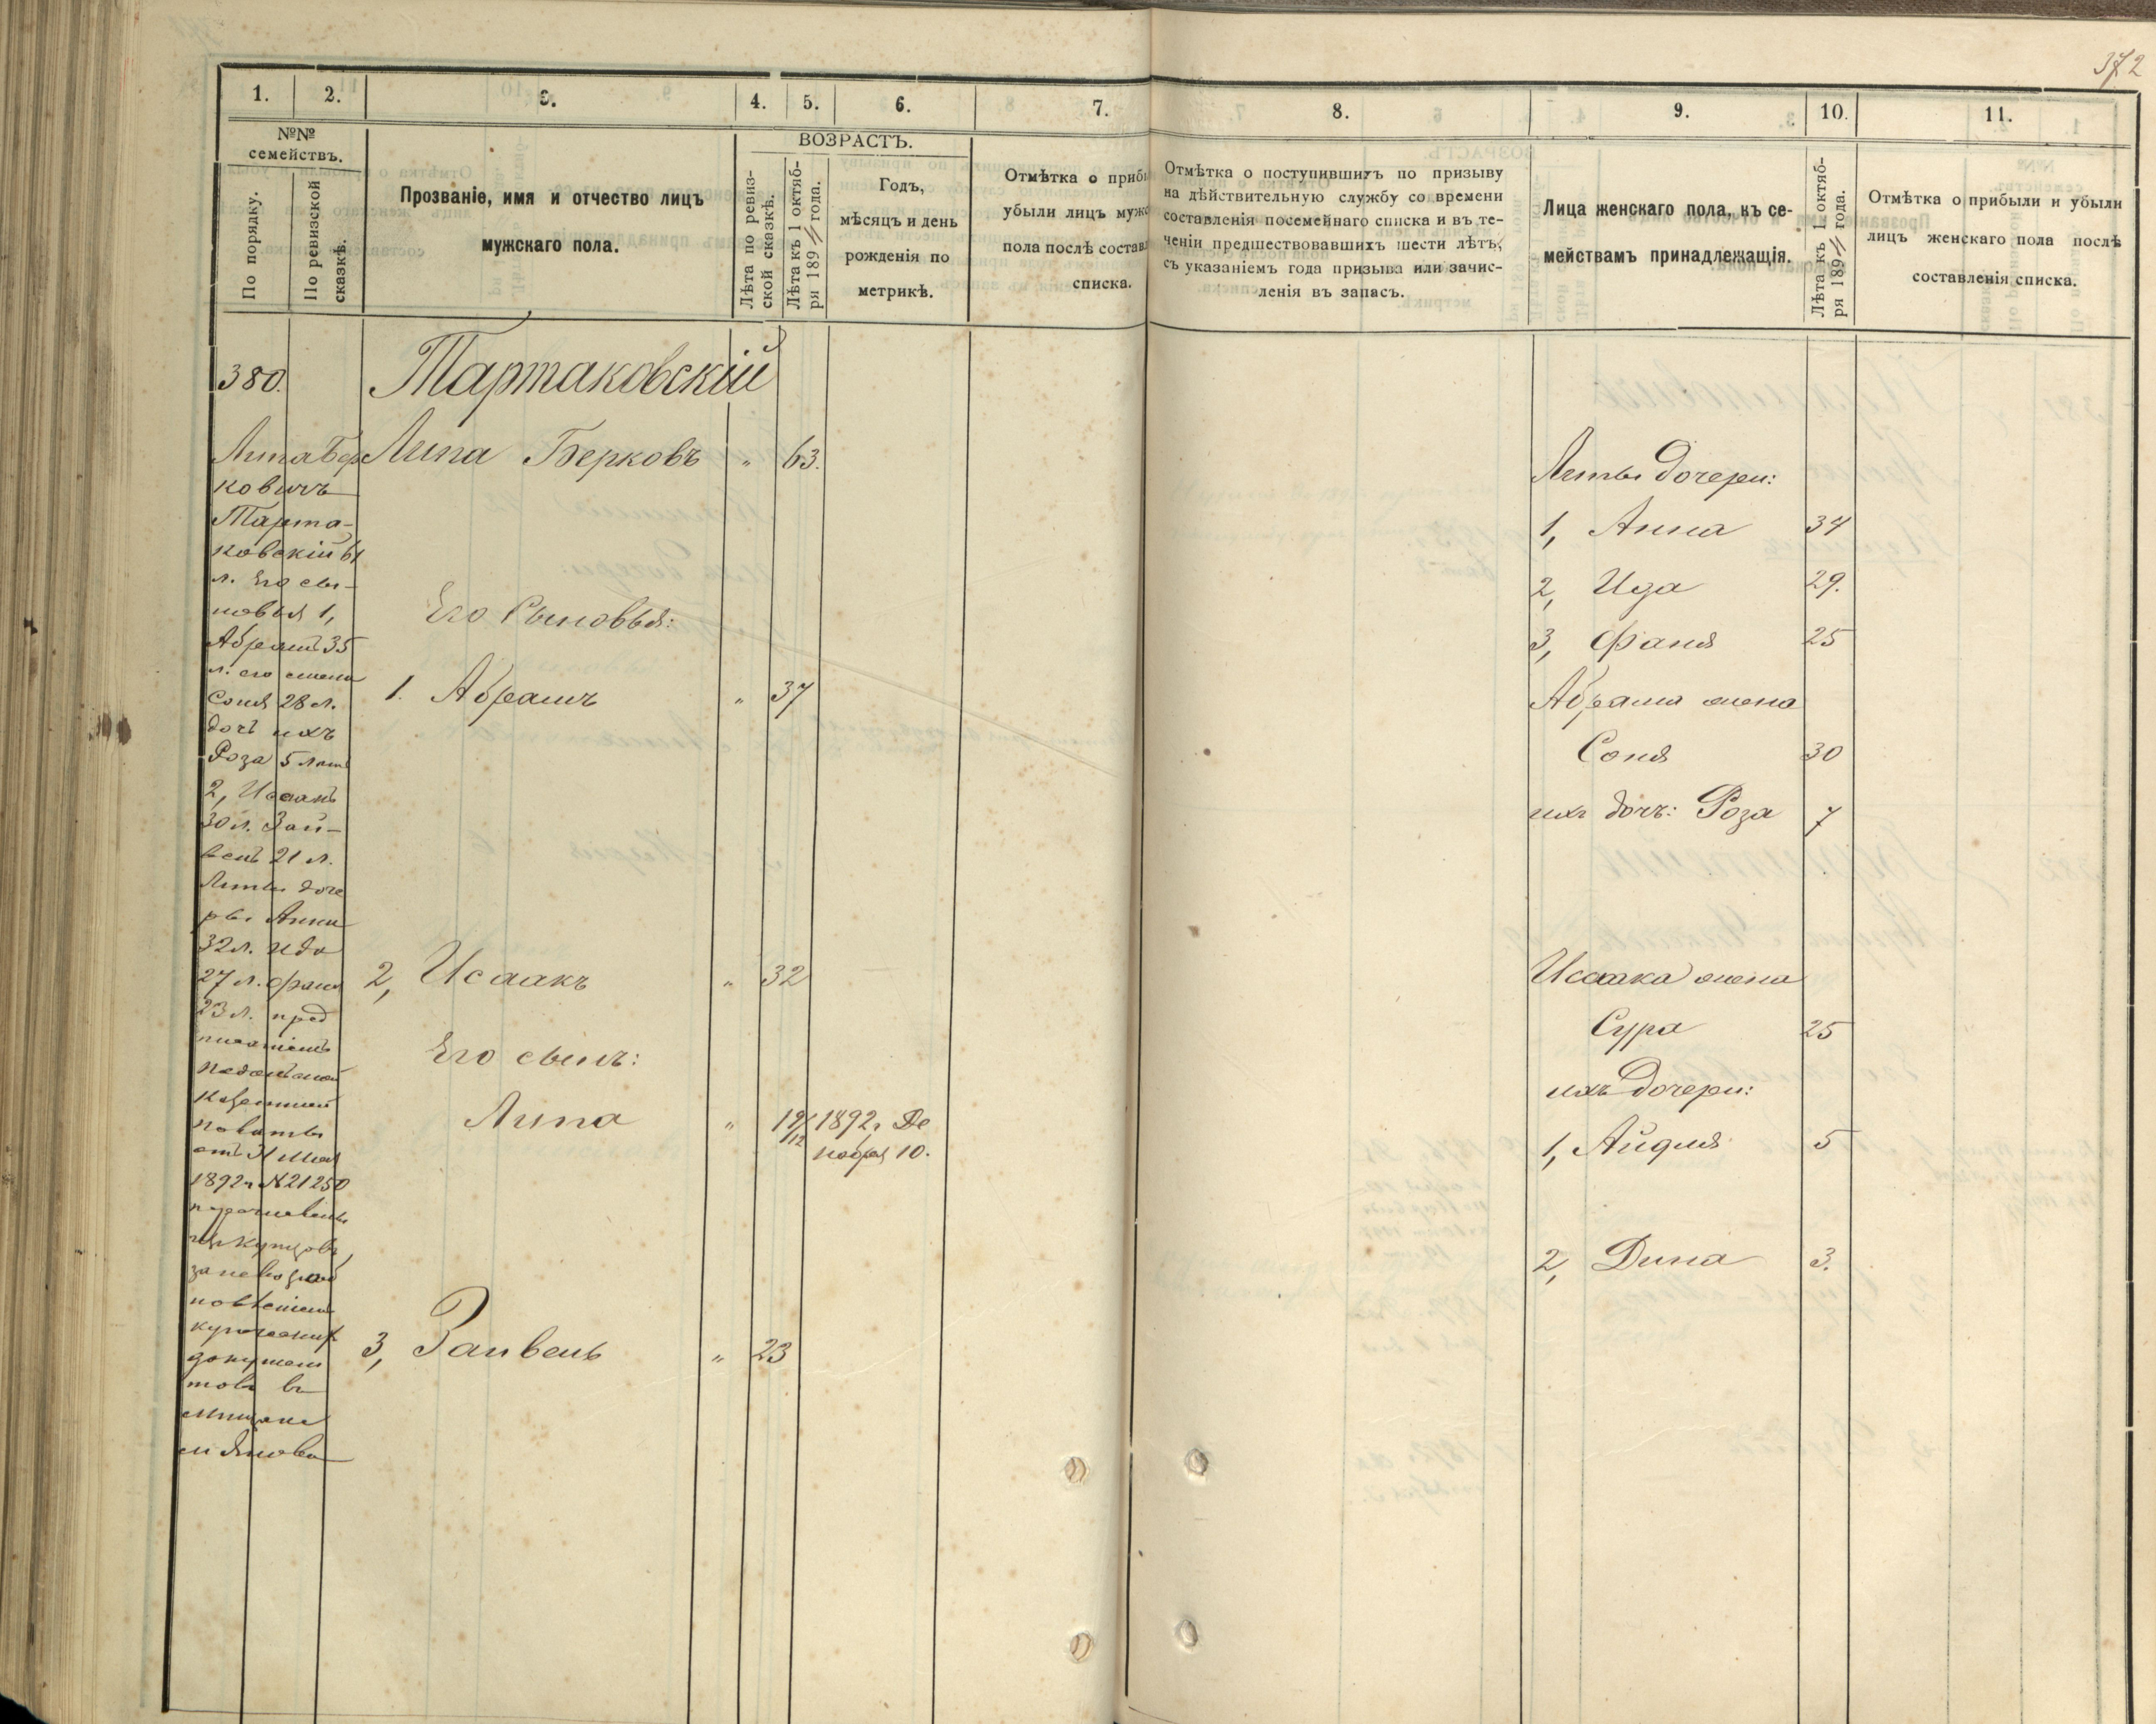 372
1. 2. 3. 4. 5. 6. 7. 8. 9. 10. 11.
№№ семействъ.
По порядку.
По ревизской сказкѣ.
Прозваніе, имя и отчество лицъ
мужскаго пола.
ВОЗРАСТЪ.
Лѣта по ревиз-
ской сказкѣ.
Лѣта къ 1 октяб-
ря 189 года.
Годъ,
мѣсяцъ и день
рожденія по
метрикѣ.
Отмѣтка о приб
убыли лицъ муж
пола послѣ состав
списка.
Отмѣтка о поступившихъ по призыву
на дѣйствительную службу со времени
составленія посемейнаго списка и въ те-
ченіи предшествовавшихъ шести лѣтъ,
съ указаніемъ года призыва или зачис-
ленія въ запасъ.
Лица женскаго пола, къ се-
мействамъ принадлежащія.
Лѣта къ 1 октяб-
ря 189 года.
Отмѣтка о прибыли и убыли
лицъ женскаго пола послѣ
составленія списка.
380.
Липа Бер
ковичъ
Тарта-
ковскій 61
л. Его сы-
новья 1,
Абрамъ 35
л. его жена
Соня 28 л.
дочь ихъ
Роза 5 лѣтъ
2, Исаакъ
30 л. Зай-
вель 21 л.
Липы доче
ри Анна
32 л. Ида
27 л. Фаня
23 л. пред
писаніемъ
Казенной
Палаты
1892 г. №21250
купцовъ,
за невозоб
новленіемъ
купеческих
докумен
товъ въ
мищане
Тартаковскій
Липа Берковъ " 63.
Его Сыновья:
1. Абрамъ " 37
2, Исаакъ " 32
Его сынъ:
Липа " 19/12 1892 г. Де
кабря 10.
3, Зайвель " 23
Липы дочери:
1, Анна 34
2, Ида 29.
3, Фаня 25
Абрама жена
Соня 30
ихъ дочь: Роза 7
Исаака жена
Сура 25
ихъ дочери:
1, Айдля 5
2, Дина 3.